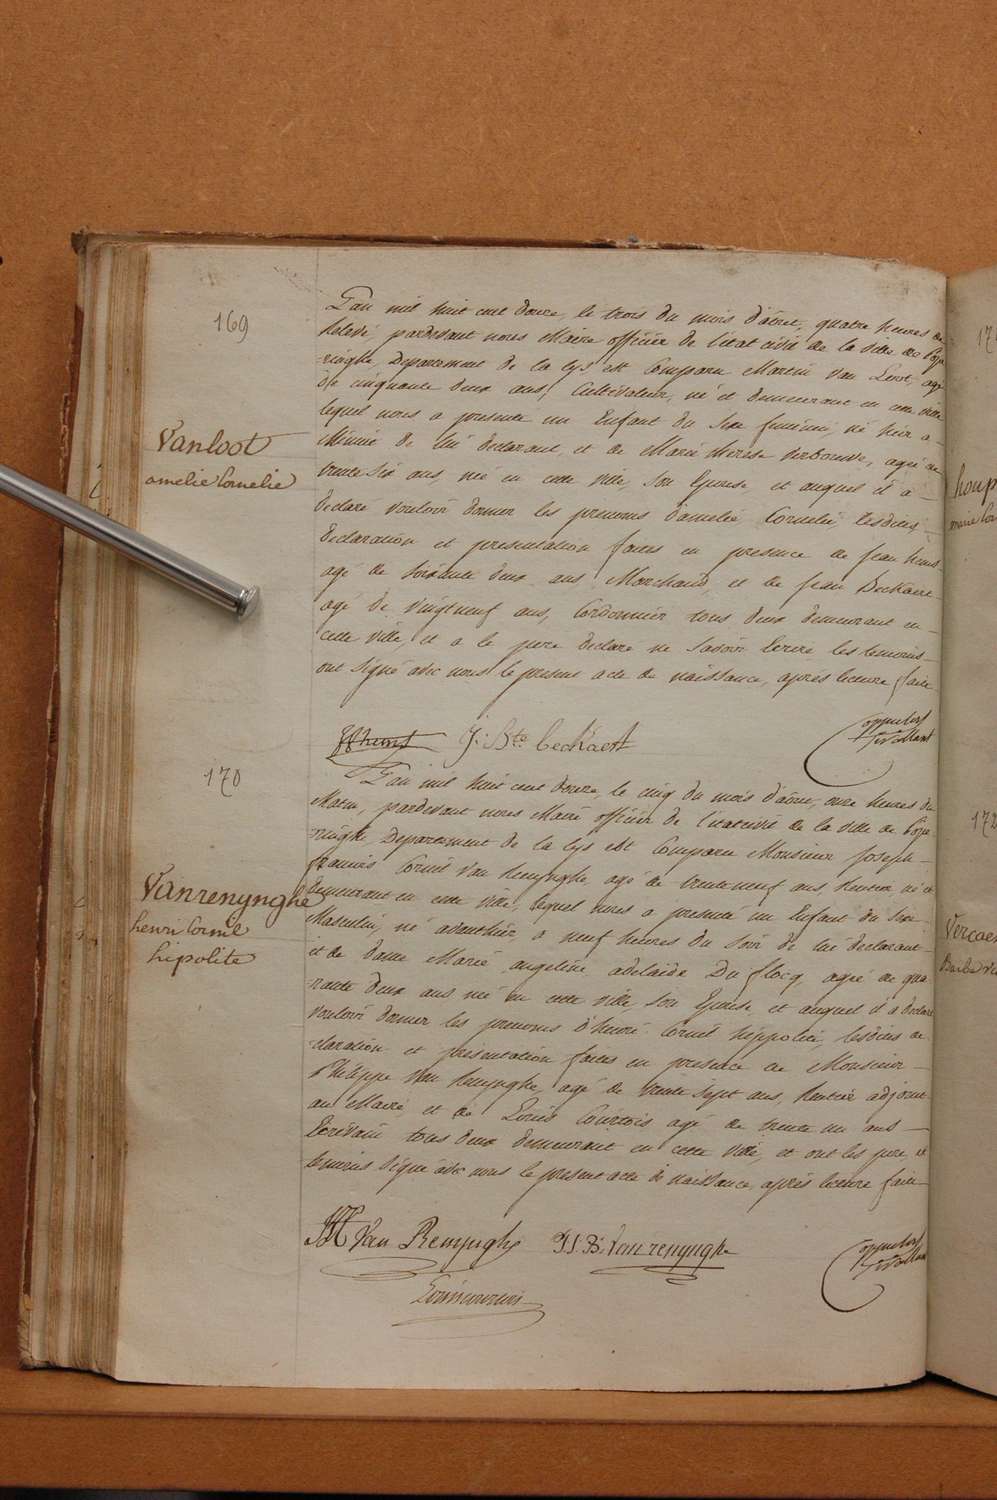 169
Vanloot
amelie Cornelie
L'an mil huit cent douze, le trois du mois d'âout, quatre heures de
Relevé, pardevant nous Maire officier de l'état civil de la ville de Pope
ringhe, Departement de la Lys est Comparu Martin Van Loot, agé
de cinquante deux ans, Cultivateur, né et demeurant en cette ville
lequel nous a presenté un Enfant du Sexe feminin, né hier a
Minuit de lui declarant, et de Marie Therese Verbouwe, agée de
trente Six ans, née en cette ville, Son Epouse, et auquel il a
declaré vouloir donner les prenoms d'amelie Cornelie lesdites,
declaration et presentation faites en presence de Jean hens
agé de soixante deux ans Marchand, et de Jean Beckaert
agé de vingtneuf ans, Cordonnier tous deux demeurant en
cette ville, et a le pere declaré ne Savoir Ecrire les temoins
ont Signé avec nous le present acte de naissance, apres lecture faite
J: Bte beckaert
170
Vanrenynghe
henri Cornil
hipolite
L'an mil huit cent douze, le cinq du mois d'âout, onze heures du
Matin, pardevant nous Maire officier de l'état civil de la ville de Pope
ringhe Departement de la Lys est Comparu Monsieur Joseph
francois Cornil Van Renynghe agé de trenteneuf ans, Rentier né et
demeurant en cette ville, lequel nous a presenté un Enfant du Sexe
Masculin, né avanthier a neuf heures du Soir de lui declarant
et de dame Marie angeline adelaide Du flocq, agée de qua
rante deux ans née en cette ville, Son Epouse, et auquel il a declaré
vouloir donner les prenoms d'henri Cornil hippolite, lesdites de
claration et présentation faites en presence de Monsieur
Philippe Van Renynghe, agé de trente sept ans, Rentier adjoint
au Maire, et de Louis Courtois agé de trente un ans
Ecrivain tous deux demeurant en cette ville, et ont les pere, et
temoins Signé avec nous le present acte de naissance, après lecture faite
Van Renynghe
J.B. Vanrenynghe
houp
Vercae